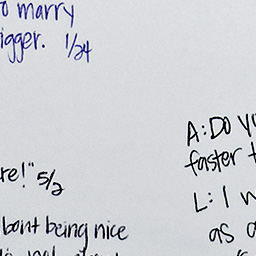 o marry
igger. 1/24
re!" 5/2
bout being nice
A: Do
faster
L: I
as a